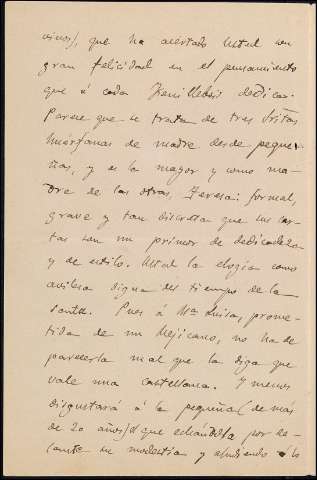 vinos), que ha acertado Usted con
gran felicidad en el pensamiento
que á cada dedica.
Parece que se trata de tres Sritas
huérfanas de madre desde peque-
ñas, y es la mayor y como ma-
dre de las otras, Teresa: formal,
grave y tan discreta que sus car-
tas son un primor de delicadeza
y de estilo. Usted la elogia como
avilesa digna del tiempo de la
santa. Pues á Mª Luisa, prome-
tida de un Mejicano, no ha de
parecerla mal que la diga que
vale una castellana. Y menos
disgustará á la pequeña (de más
de 20 años) el que echándola por de-
lante su modestia y aludiendo á lo